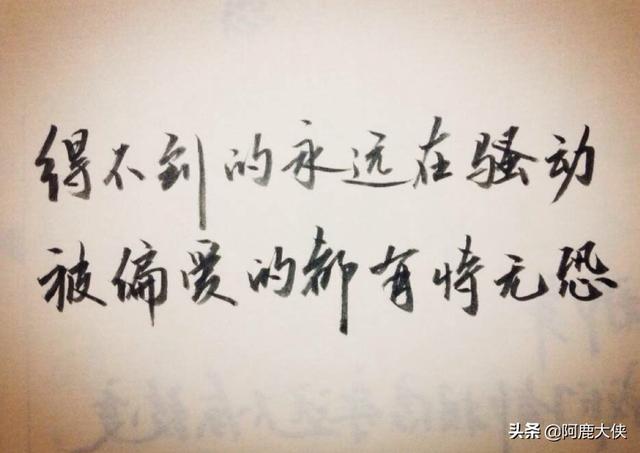 得不到的永远在骚动
被偏爱的都有恃无恐
头条 @阿鹿大侠